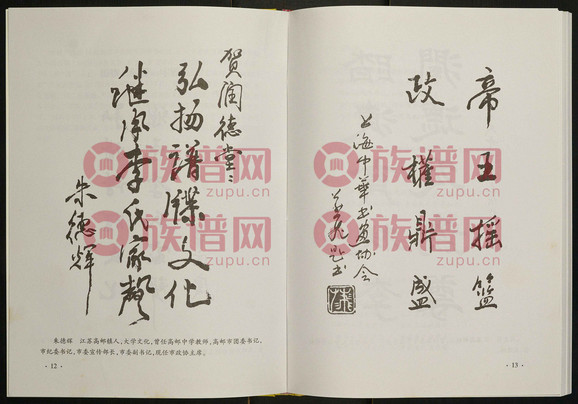 贺润德堂:
弘扬谱牒文化
继承李氏家声
朱德辉
朱德辉 江苏高邮镇人,大学文化,曾任高邮中学教师,高邮市团委书记、
市纪委书记、市委宣传部长、市委副书记,现任市政协主席。
·12·
帝王摇篮
政权鼎盛
上海中华书画协会
题书
·13·
族谱网
zupu.cn
族谱网
zupu.cn
族谱网
zupu.cn
族谱网
zupu.cn